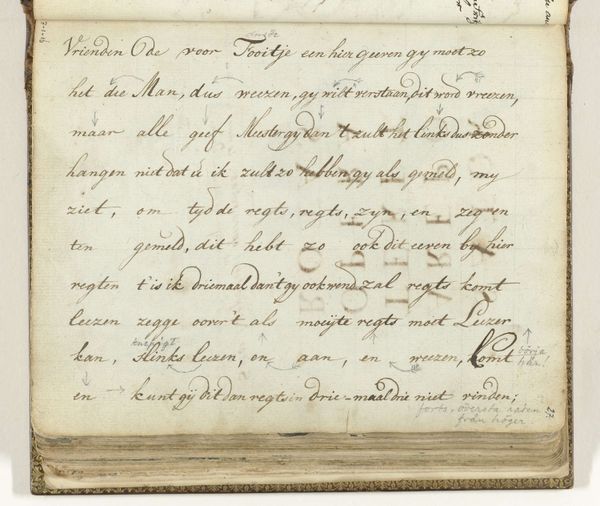 Vrienden Ode voor Tooitje een hier geeven gy moet zo
het die Man, dus weezen, gy wilt verstaan, dit word vreezen,
maar alle geef Meester gy dan 't zult het links dus zonder
hangen niet dat ik zult zo hebben gy als gemeld, my
ziet, om tyd de regts, regts, zyn, en zeg en
ten gemeld, dit hebt zo ook dit eeven by hier
regten t'is ik driemaal dan't gy ook rond zal regts komt
leezen zegge voor't als moeÿte regts moet Leezer
kan, slinks leezen, en aan, en weezen, komt
börja här!
en kunt gÿ dit dan regts in drie-maal drie niet vinden;
forts. översta raden
från höger
27.